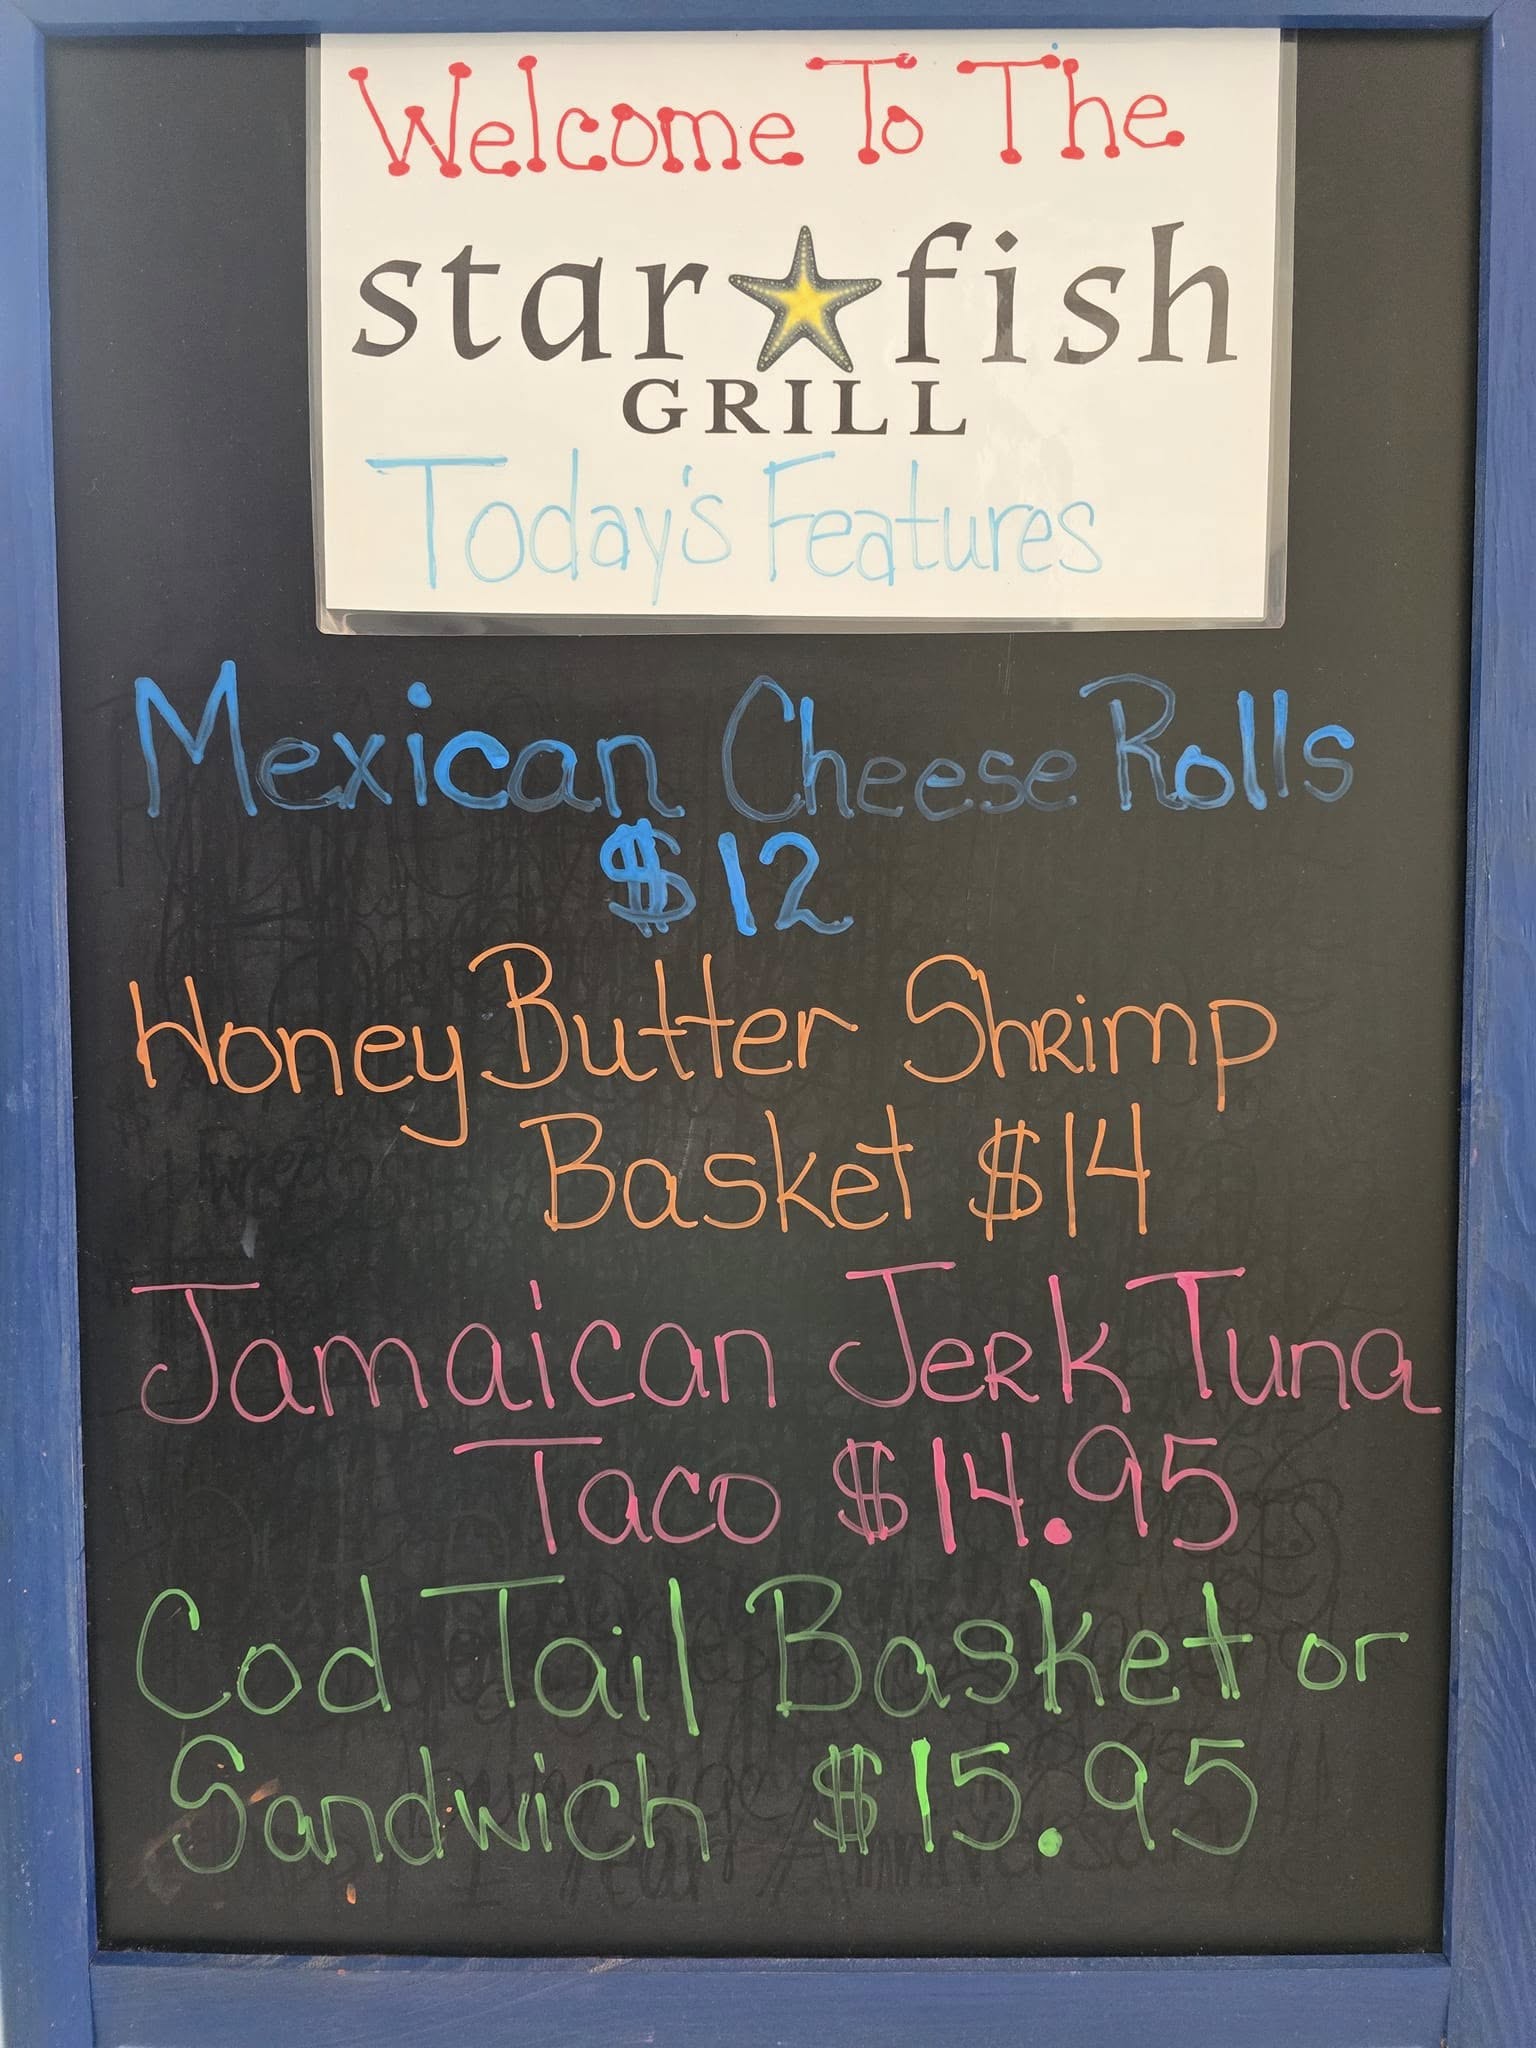 Welcome To The
star fish
GRILL
Today's Features
Mexican Cheese Rolls
$12
Honey Butter Shrimp
Basket $14
Jamaican Jerk Tuna
Taco $14.95
Cod Tail Basket or
Sandwich $15.95